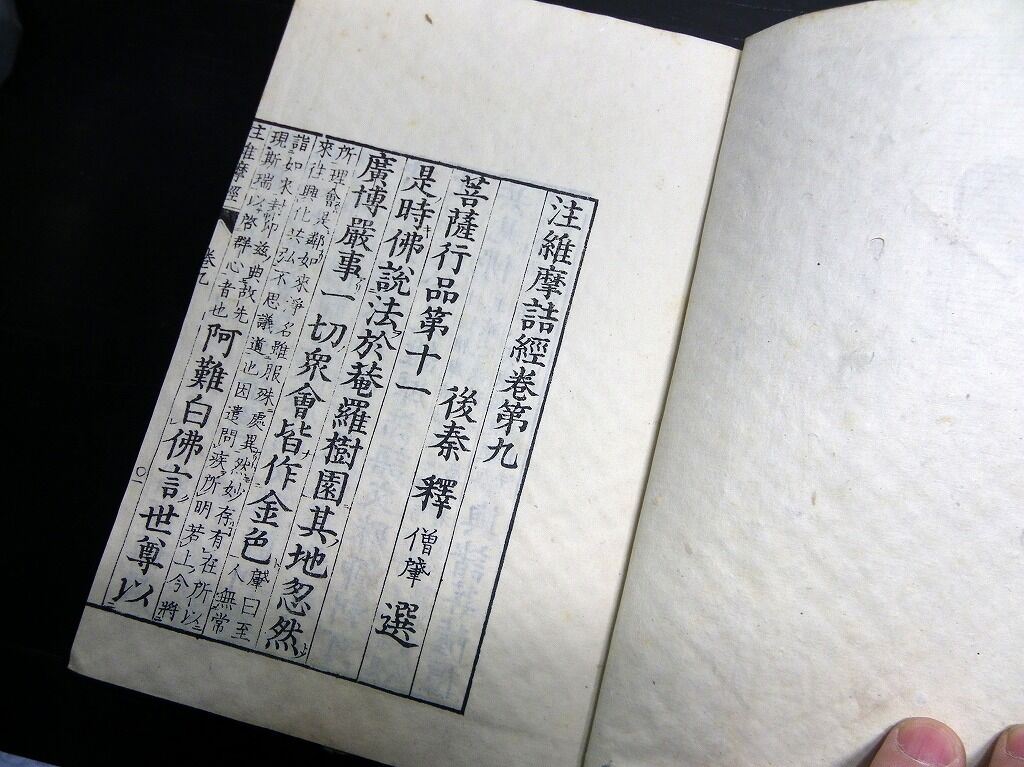 注維摩詰經卷第九
後秦 釋 僧肇 選
菩薩行品第十一
是時佛說法於菴羅樹園其地忽然
廣博嚴事一切衆會皆作金色
肇曰至
人無常
所理會是鄰如來淨名雖服殊處異然妙存有在所以
來往興化共弘不思議道也因遺問疾所明若上今將
詣如來封印茲典故先
現斯瑞以啓群心者也
阿難白佛言世尊以
注維摩經 卷九